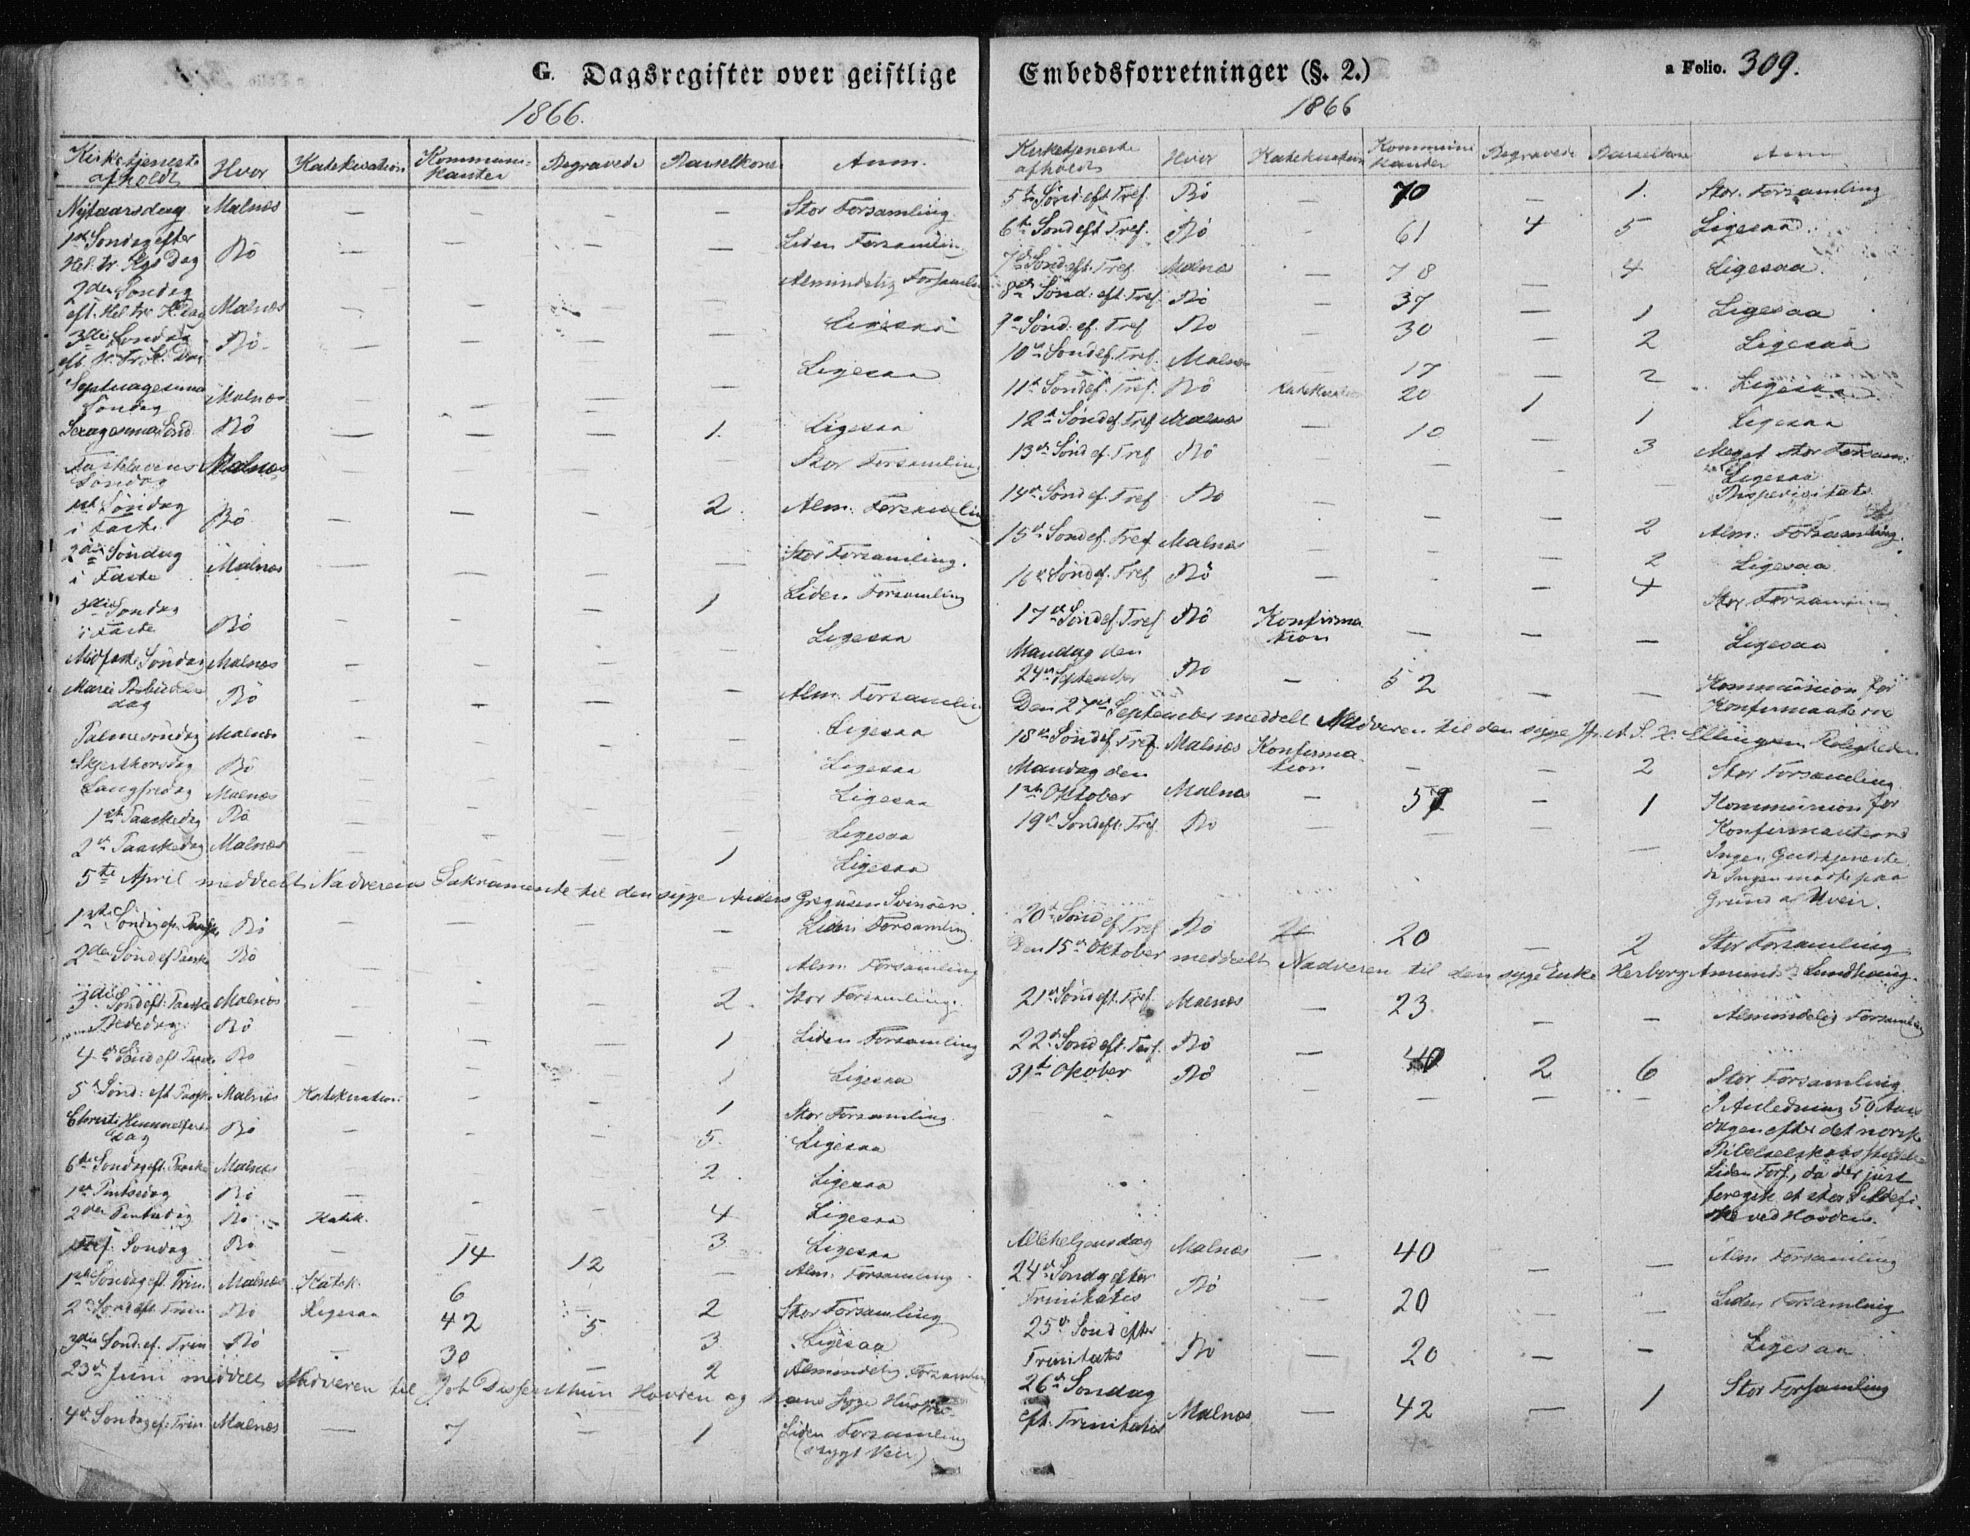 G. Dagsregister over geistlige
1866.
Kirketjeneste afholdt | Hvor | Katekisation | Kommunikanter | Begravede | Barselkone | Anm.
Nytaarsdag | Malnæs | — | — | — | — | Stor Forsamling.
1ste Søndag efter Hel. tr. Kgs Dag | Bö | — | — | — | — | Liden Forsamling
2den Søndag eft. Hel. tr. K. Dag | Malnæs | — | — | — | — | Almindelig Forsamling
3die Søndag eft. H. Tr. K. Dag | Bö | — | — | — | — | Ligesaa
Septuagesima Søndag | Malnæs | — | — | — | — | Ligesaa
Sexagesima Sønd. | Bö | — | — | — | 1. | Ligesaa
Fastelavens Søndag | Malnæs | — | — | — | — | Stor Forsamling
1ste Søndag i Faste | Bö | — | — | — | 2. | Alm. Forsamling
2den Søndag i Faste | Malnæs | — | — | — | — | Stor Forsamling.
3die Søndag i Faste | Bö | — | — | — | 1 | Liden Forsamling
Midfaste Søndag | Malnæs | — | — | — | — | Ligesaa
Mariæ Bebudelses dag | Bö | — | — | — | — | Alm. Forsamling
Palmesøndag | Malnæs | — | — | — | — | Ligesaa
Skjærthorsdag | Bö | — | — | — | — | Ligesaa
Langfredag | Malnæs | — | — | — | — | Ligesaa
1ste Paaskedag | Bö | — | — | — | — | Ligesaa
2den Paaskedag | Malnæs | — | — | — | 1 | Ligesaa
5te April meddeelt Nadverens Sakramente til den syge Anders Gregusen Svinöen.
1ste Søndag ef. Paaske | Bö | — | — | — | — | Liden Forsamling
2den Sønd ef Paaske | Bö | — | — | — | — | Alm. Forsamling
3die Sønd eft. Paaske | Malnæs | — | — | — | 2. | Stor Forsamling.
Bededag | Bö | — | — | — | 1 | Liden Forsamling
4de Sønd eft. Paaske | Bö | — | — | — | 1 | Ligesaa
5te Sønd: eft Paaske | Malnæs | Katekisation: | — | — | 1 | Stor Forsamling.
Christi Himmelfarts dag | Bö | — | — | — | 5. | Ligesaa
6te Søndag eft. Paaske | Malnæs | — | — | — | 2. | Ligesaa
1ste Pintsedag | Bö | — | — | — | 4 | Ligesaa
2den Pintsedag | Bö | Katek. | — | — | 3 | Ligesaa
Tref. Søndag | Bö | — | 14 | 12 | — | Alm. Forsamling
1ste Søndag eft. Trin. | Malnæs | Katek. | 6 | — | 2 | Stor Forsamling
2den Sønd eft. Trin | Bö | Ligesaa | 42 | 5 | 3 | Ligesaa
3die Sønd. ef. Trin | Bö | — | 30 | — | 2 | Almindelig Forsamling
23de Juni meddelt Nadveren til Joh. Hovden og hans syge Hustru
4de Søndag ef. Trin | Malnæs | — | 7 | — | 1 | Liden Forsamling (stygt Veir)
Embedsforretninger (§. 2.)
a Folio. 309.
1866
Kirketjeneste afholdt | Hvor | Katekisation | Kommunikanter | Begravede | Barselkone | Anm
5te Sønd: eft Tref. | Bö | — | 70 | — | 1. | Stor. Forsamling
6te Sønd eft Tref. | Bö | — | 61 | 4 | 5 | Ligesaa
7de Sønd. eft. Tref | Malnæs | — | 78 | — | 4 | Ligesaa.
8de Sønd: eft. Tref. | Bö | — | 37 | — | 1 | Ligesaa
9de Sønd: ef. Tref | Bö | — | 30 | — | 2 | Ligesaa
10de Sønd ef. Tref. | Malnæs | — | 17 | — | 2 | Ligesaa
11te Sønd ef. Tref. | Bö | Katekisation | 20 | 1 | 1 | Ligesaa
12te Sønd ef Tref | Malnæs | — | 10 | — | 3 | Meget stor Forsam:
13de Sønd ef. Tref | Bö | — | — | — | — | Ligesaa Bispevisitats
14de Sønd ef. Tref | Bö | — | — | — | 2 | Alm: Forsamling.
15de Sønd ef. Tref | Malnæs | — | — | — | 2 | Ligesaa
16de Sønd ef. Tref | Bö | — | — | — | 4 | Stor Forsamling
17de Sønd ef. Tref | Bö | Konfirmation | — | — | — | Ligesaa
Mandag den 24de September | Bö | — | 52 | — | — | Kommunion for Konfirmanterne
Den 27de September meddelt Nadveren til den syge Ellingsen Roligheden
18de Sønd ef Tref. | Malnæs | Konfirmation | — | — | 2 | Stor Forsamling
Mandag den 1ste Oktober | Malnæs | — | 59 | — | 1 | Kommunion for Konfirmanterne
19de Sønd eft. Tref. | Bö | — | — | — | — | Ingen Gudstjeneste da Ingen mødte paa Grund af Uveir.
20de Sønd ef Tref | Bö | — | 20 | — | 2 | Stor Forsamling
Den 15de Oktober meddeelt Nadveren til den syge Enke Herborg Amundsd. Sandhaug.
21de Sønd eft. Tref. | Malnæs | — | 23 | — | — | Almindelig Forsamling
22de Sønd eft. Tref. | Bö | — | 40 | 2 | 6 | Stor Forsamling
31te Oktober | Bö | — | — | — | — | I Anledning 50 Aars dagen efter det norske Bibelselskabs Stiftelse Liden Fors., da der just foregik et stor Sildefiske ved Hovden.
Allehelgensdag | Malnæs | — | 40 | — | — | Alm Forsamling
24de Søndag efter Trinitatis | Bö | — | 20 | — | — | Liden Forsamling
25de Sønd efter Trinitatis | Bö | — | 20 | — | — | Ligesaa
26de Søndag eft. Trinitatis | Malnæs | — | 42 | — | 1 | Stor Forsamling